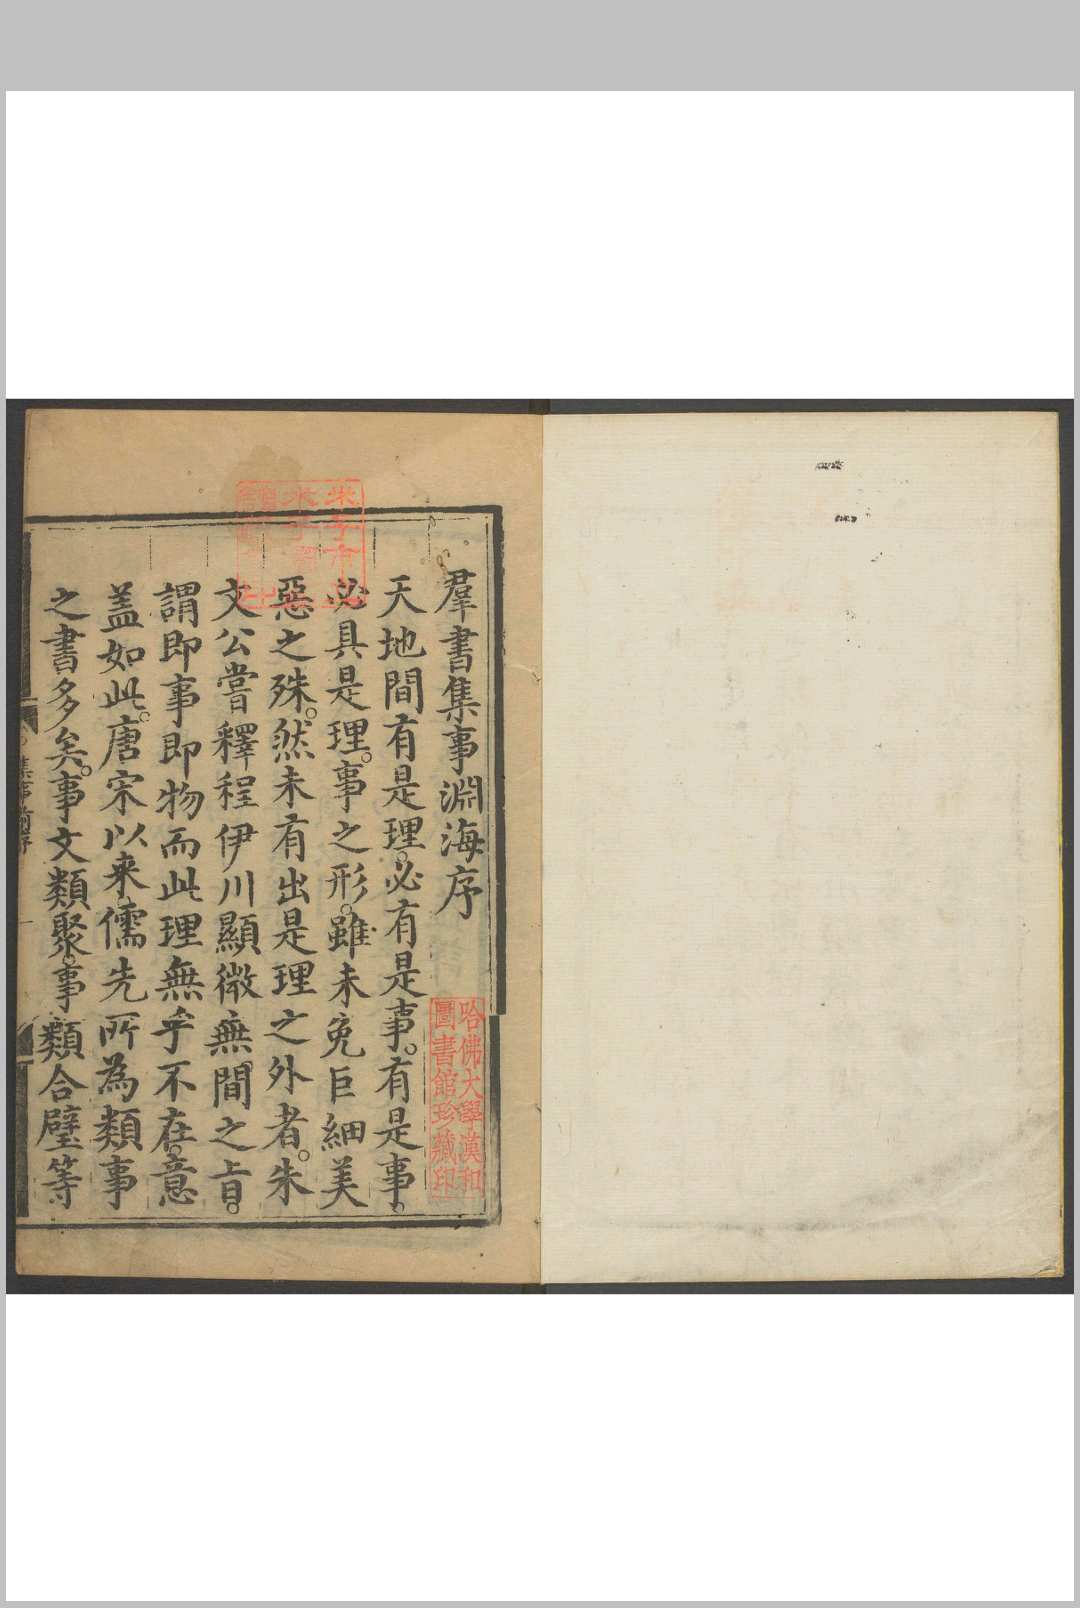 羣書集事淵海序
天地間有是理。必有是事。有是事。
必具是理。事之形。雖未免巨細美
惡之殊。然未有出是理之外者。朱
文公嘗釋程伊川顯微無間之旨。
謂即事即物而此理無乎不在。意
盖如此。唐宋以来儒先所為類事
之書多矣。事文類聚。事類合璧等
哈佛大學漢和
圖書館珍藏印